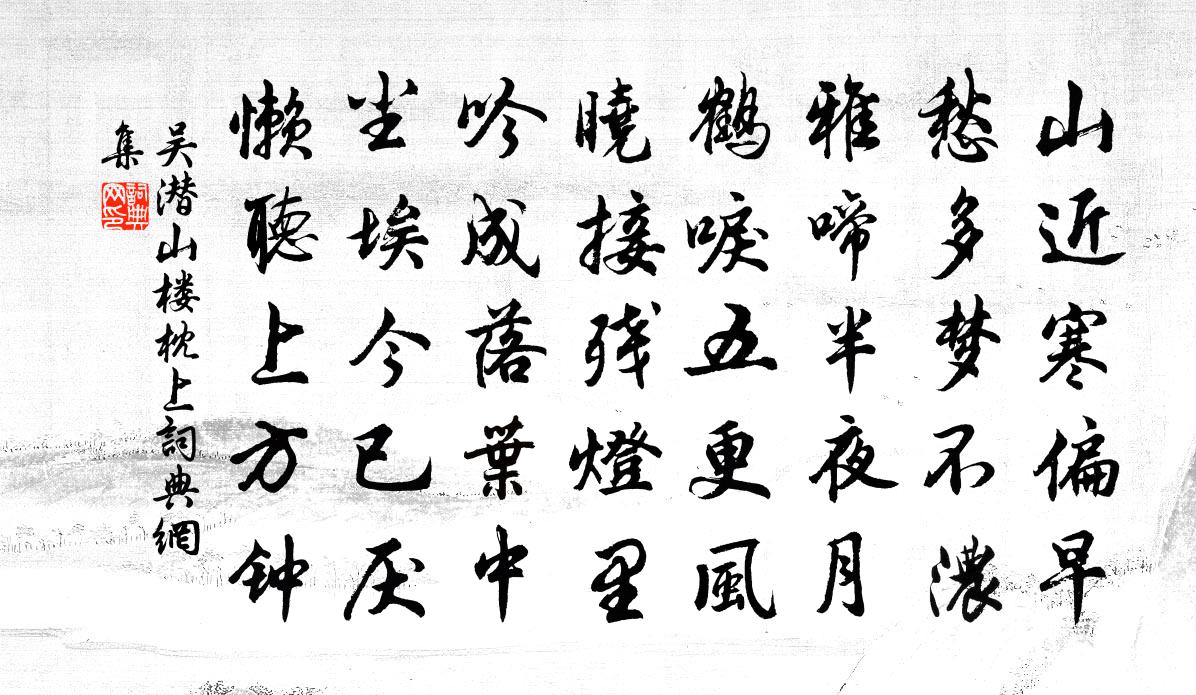 山近寒偏早
愁多梦不濃
雅啼半夜月
鶴唳五更風
曉接残燈里
吟成落葉中
尘埃今已厌
懒聽上方钟
吴潜山楼枕上詞典網
集
詞典
网印